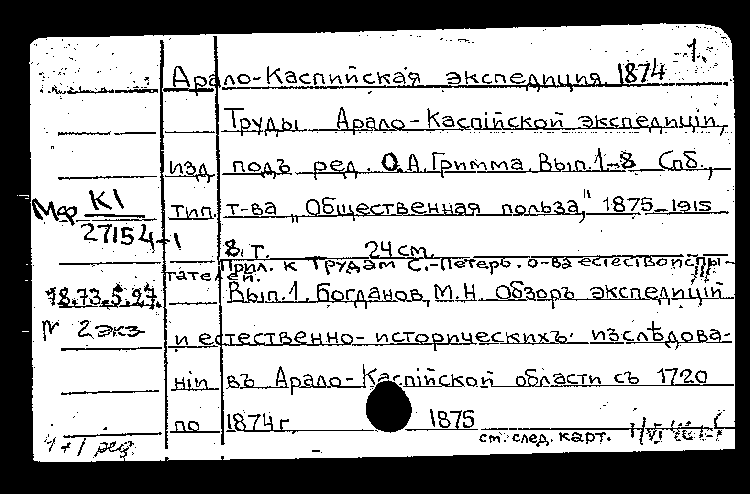 1.
Арало-Каспийская экспедиция 1874
Труды Арало-Каспійской экспедиціи,
изд. подъ ред. О.А.Гримма. Вып.1-8 Спб.,
Мф К1 тип. т-ва „Общественная польза," 1875-1915
27154+1
8 т. 24см.
Прил. к Трудам С.-Петерб. о-ва естествоиспы-
тателей.
18.73.5.27. Вып.1. Богданов, М.Н. Обзоръ экспедицій
2 экз и естественно-историческихъ изслѣдова-
ніи въ Арало-Каспійской области съ 1720
по 1874г. 1875
4+1 ред. см. след. карт.